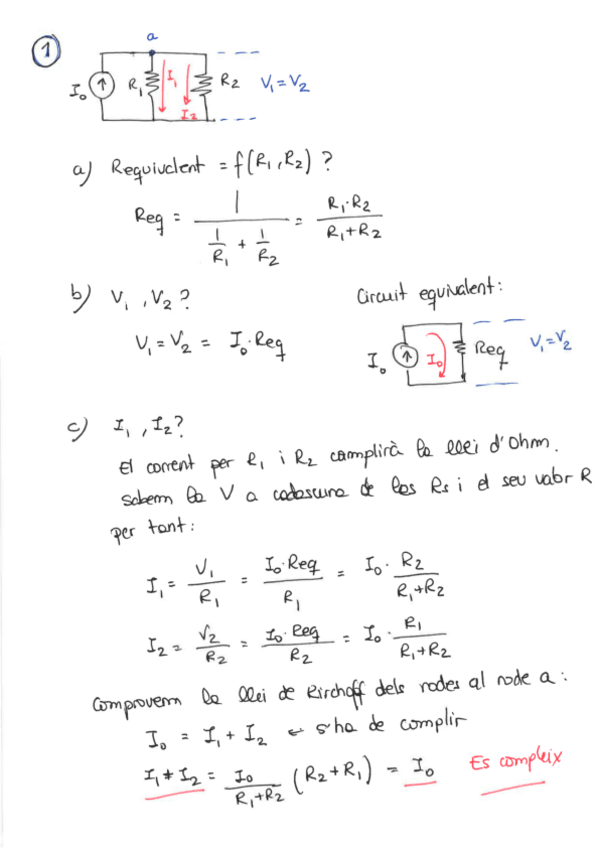 1
a
I₀ R₁ I₁ I₂ R₂ V₁ = V₂
a) Requivalent = f(R₁, R₂) ?
Req = 1 / (1/R₁ + 1/R₂) = R₁·R₂ / (R₁+R₂)
b) V₁, V₂?
Circuit equivalent:
V₁ = V₂ = I₀·Req
I₀ I₀ Req V₁=V₂
c) I₁, I₂?
El corrent per R₁ i R₂ complirà la llei d'Ohm.
Sabem la V a cadascuna de les Rs i el seu valor R
per tant:
I₁ = V₁/R₁ = I₀·Req/R₁ = I₀· R₂/(R₁+R₂)
I₂ = V₂/R₂ = I₀·Req/R₂ = I₀· R₁/(R₁+R₂)
Comprovem la llei de Kirchoff dels nodes al node a:
I₀ = I₁ + I₂ ← s'ha de complir
I₁ + I₂ = I₀/(R₁+R₂) (R₂+R₁) = I₀ Es compleix